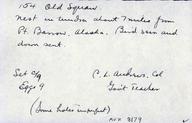 154 Old Squaw.
Nest in tundra about 7 miles from
Pt. Barrow, Alaska. Bird seen and
down sent.
Set c/9
Eggs 9
C. L. Andrews, Col
Gov't Teacher
(Some holes imperfect)
MVZ 3179